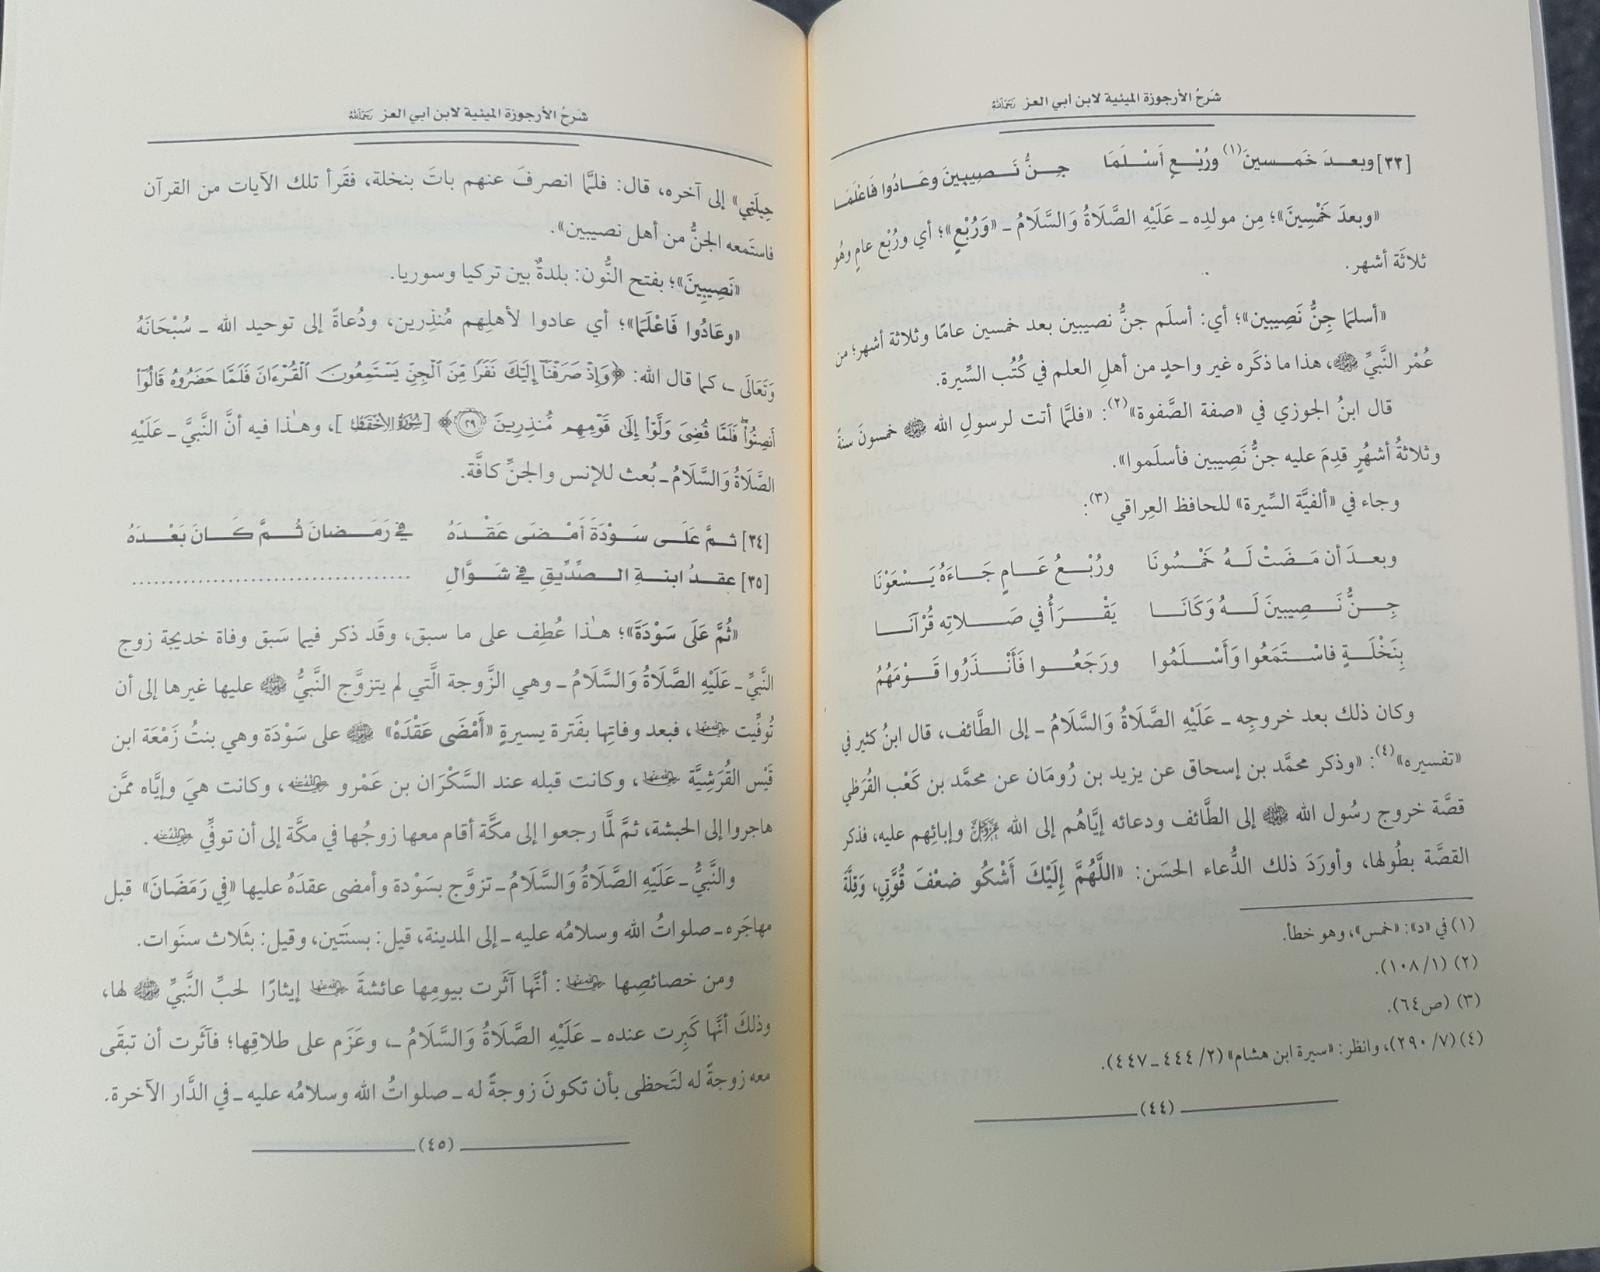 شَرحُ الأرجوزة الميئية لابن أبي العز رَحِمَهُ اللهُ
[٣٣] وبعـدَ خَمـسينَ(١) ورُبْـعٍ أَسْـلَمَا جِـنُّ نَـصِيبِينَ وعَـادُوا فَاعْلَمَـا
«وبعدَ خَمْسِينَ»؛ مِن مولدِه ـ عَلَيْهِ الصَّلَاةُ وَالسَّلَامُ ـ «وَرُبْعٍ»؛ أي ورُبْع عامٍ وهُو
ثلاثَة أشهر.
«أسلمَا جِنُّ نَصِيبين»؛ أي: أسلَم جنُّ نصيبين بعد خمسين عامًا وثلاثة أشهر؛ من
عُمْر النَّبيِّ ﷺ، هذا ما ذكَره غير واحدٍ من أهلِ العلم في كتُب السِّيرة.
قال ابنُ الجوزي في «صفة الصَّفوة»(٢): «فلمَّا أتت لرسولِ الله ﷺ خمسونَ سنةً
وثلاثةُ أشهُرٍ قدِمَ عليه جنُّ نَصِيبين فأسلَموا».
وجاء في «ألفيَّة السِّيرة» للحافظ العِراقي(٣):
وبعـدَ أن مَـضَتْ لَـهُ خَمْـسُونَا ورُبْـعُ عَـامٍ جَـاءَهُ يَـسْعَوْنَا
جِـنُّ نَـصِيبِينَ لَـهُ وَكَانَـا يَقْـرَأُ في صَـلاتِه قُرْآنَـا
بِنَخْلَـةٍ فاسْـتَمَعُوا وَأَسْـلَمُوا ورَجَعُـوا فَأَنْـذَرُوا قَـوْمَهُمُ
وكان ذلك بعد خروجِه ـ عَلَيْهِ الصَّلَاةُ وَالسَّلَامُ ـ إلى الطَّائف، قال ابنُ كثير في
«تفسيره»(٤): «وذكر محمَّد بن إسحاق عن يزيد بن رُومَان عن محمَّد بن كَعْب القُرَظي
قصَّة خروج رسُول الله ﷺ إلى الطَّائف ودعائه إيَّاهُم إلى الله عَزَّوَجَلَّ وإبائِهم عليه، فذكر
القصَّة بطُولها، وأورَدَ ذلك الدُّعاء الحسَن: «اللَّهُمَّ إِلَيْكَ أَشْكُو ضعْفَ قُوَّتي، وَقِلَّةَ
(١) في «د»: «خمس»، وهو خطأ.
(٢) (١/ ١٠٨).
(٣) (ص٦٤).
(٤) (٧/ ٢٩٠)، وانظر: «سيرة ابن هشام» (٢/ ٤٤٤ ـ ٤٤٧).
(٤٤)
شَرحُ الأرجوزة الميئية لابن أبي العز رَحِمَهُ اللهُ
حِيلَتِي» إلى آخره، قال: فلمَّا انصرفَ عنهم باتَ بنخلة، فقَرأ تلك الآيات من القرآن
فاستَمعه الجنُّ من أهل نصيبين».
«نَصِيبِينَ»؛ بفتح النُّون: بلدةٌ بين تركيا وسوريا.
«وعَادُوا فَاعْلَمَا»؛ أي عادوا لأهلِهم مُنذِرين، ودُعاةً إلى توحيد الله ـ سُبْحَانَهُ
وَتَعَالَى ـ، كما قال الله: ﴿وَإِذْ صَرَفْنَآ إِلَيْكَ نَفَرًا مِّنَ ٱلْجِنِّ يَسْتَمِعُونَ ٱلْقُرْءَانَ فَلَمَّا حَضَرُوهُ قَالُوٓا۟
أَنصِتُوا۟ فَلَمَّا قُضِىَ وَلَّوْا۟ إِلَىٰ قَوْمِهِم مُّنذِرِينَ ٢٩﴾ [سُورَةُ الأَحْقَافِ]، وهـٰذا فيه أنَّ النَّبيَّ ـ عَلَيْهِ
الصَّلَاةُ وَالسَّلَامُ ـ بُعث للإنس والجنِّ كافَّة.
[٣٤] ثـمَّ عَلَـى سَـوْدَةَ أَمْـضَى عَقْـدَهُ في رَمَـضانَ ثُـمَّ كَـانَ بَعْـدَهُ
[٣٥] عقـدُ ابنـةِ الـصِّدِّيقِ في شَـوَّالِ ....................................
«ثُمَّ عَلَى سَوْدَةَ»؛ هـٰذا عُطِف على ما سبق، وقَد ذكر فيما سَبق وفاة خديجة زوج
النَّبيِّ ـ عَلَيْهِ الصَّلَاةُ وَالسَّلَامُ ـ وهي الزَّوجة الَّتي لم يتزوَّج النَّبيُّ ﷺ عليها غيرها إلى أن
تُوفِّيت رَضِيَ اللهُ عَنْهَا، فبعد وفاتِها بفَترة يسيرةٍ «أَمْضَى عَقْدَهْ» ﷺ على سَوْدَة وهي بنتُ زَمْعَة ابن
قَيْس القُرَشِيَّة رَضِيَ اللهُ عَنْهَا، وكانت قبله عند السَّكْرَان بن عَمْرو رَضِيَ اللهُ عَنْهُ، وكانت هيَ وإيَّاه ممَّن
هاجروا إلى الحبشة، ثمَّ لمَّا رجعوا إلى مكَّة أقام معها زوجُها في مكَّة إلى أن توفِّي رَضِيَ اللهُ عَنْهُ.
والنَّبيُّ ـ عَلَيْهِ الصَّلَاةُ وَالسَّلَامُ ـ تزوَّج بسَوْدة وأمضى عقدَهُ عليها «فِي رَمَضَانَ» قبل
مهاجَره ـ صلواتُ الله وسلامُه عليه ـ إلى المدينة، قيل: بسنَتين، وقيل: بثلاث سنَوات.
ومن خصائصِها رَضِيَ اللهُ عَنْهَا: أنَّها آثَرت بيومِها عائشةَ رَضِيَ اللهُ عَنْهَا إيثارًا لحبِّ النَّبيِّ ﷺ لها،
وذلكَ أنَّها كَبِرت عنده ـ عَلَيْهِ الصَّلَاةُ وَالسَّلَامُ ـ، وعَزَم على طلاقِها؛ فآثَرت أن تبقَى
معه زوجةً له لتَحظى بأن تكونَ زوجةً له ـ صلواتُ الله وسلامُه عليه ـ في الدَّار الآخرة.
(٤٥)